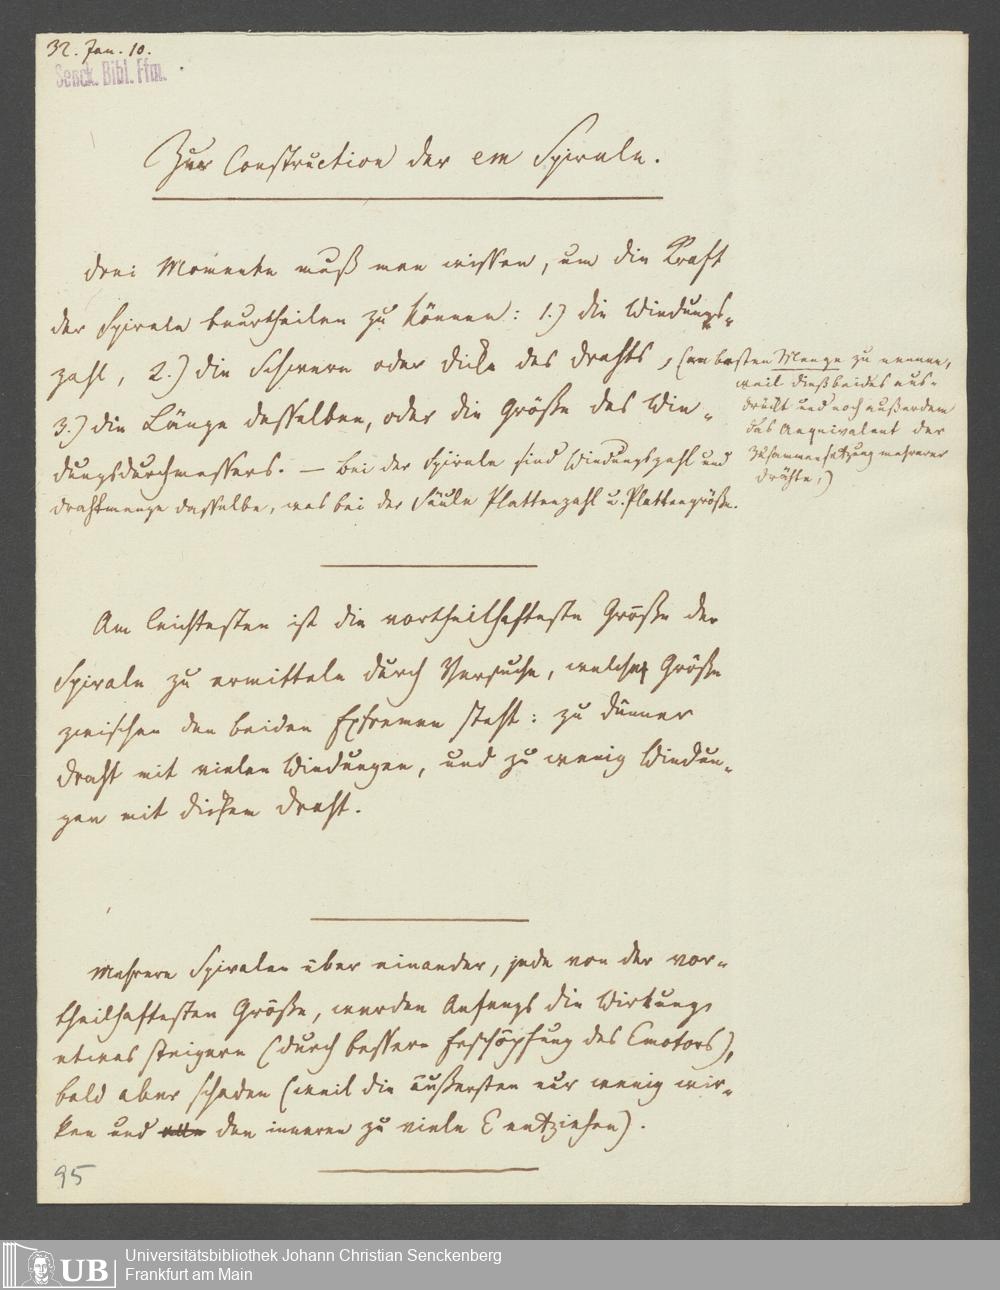 32. Jan. 10.
Senck. Bibl. Ffm.
Zur Construction der em Spirale.
Drei Momente muß man wissen, um die Kraft
der Spirale beurtheilen zu können: 1.) die Windungs-
zahl, 2.) die Schwere oder Dicke des Drahts, (am besten Menge zu nennen,
weil dieß beides aus-
drückt und noch außerdem
das Aequivalent der
Zusammensetzung mehrerer
Drähte;)
3.) die Länge desselben, oder die Größe des Win-
dungsdurchmessers. — Bei der Spirale sind Windungszahl und
Drahtmenge dasselbe, was bei der Säule Plattenzahl u. Plattengröße.
Am leichtesten ist die vortheilhafteste Größe der
Spirale zu ermitteln durch Versuche, welche Größe
zwischen den beiden Extremen steht: zu dünner
Draht mit vielen Windungen, und zu wenig Windun-
gen mit dickem Draht.
Mehrere Spiralen über einander, jede von der vor-
theilhaftesten Größe, werden Anfangs die Wirkung
etwas steigern (durch bessere Erschöpfung des Emotors),
bald aber schaden (weil die äußersten nur wenig wir-
ken und den inneren zu viele E entziehen).
95
UB
Universitätsbibliothek Johann Christian Senckenberg
Frankfurt am Main